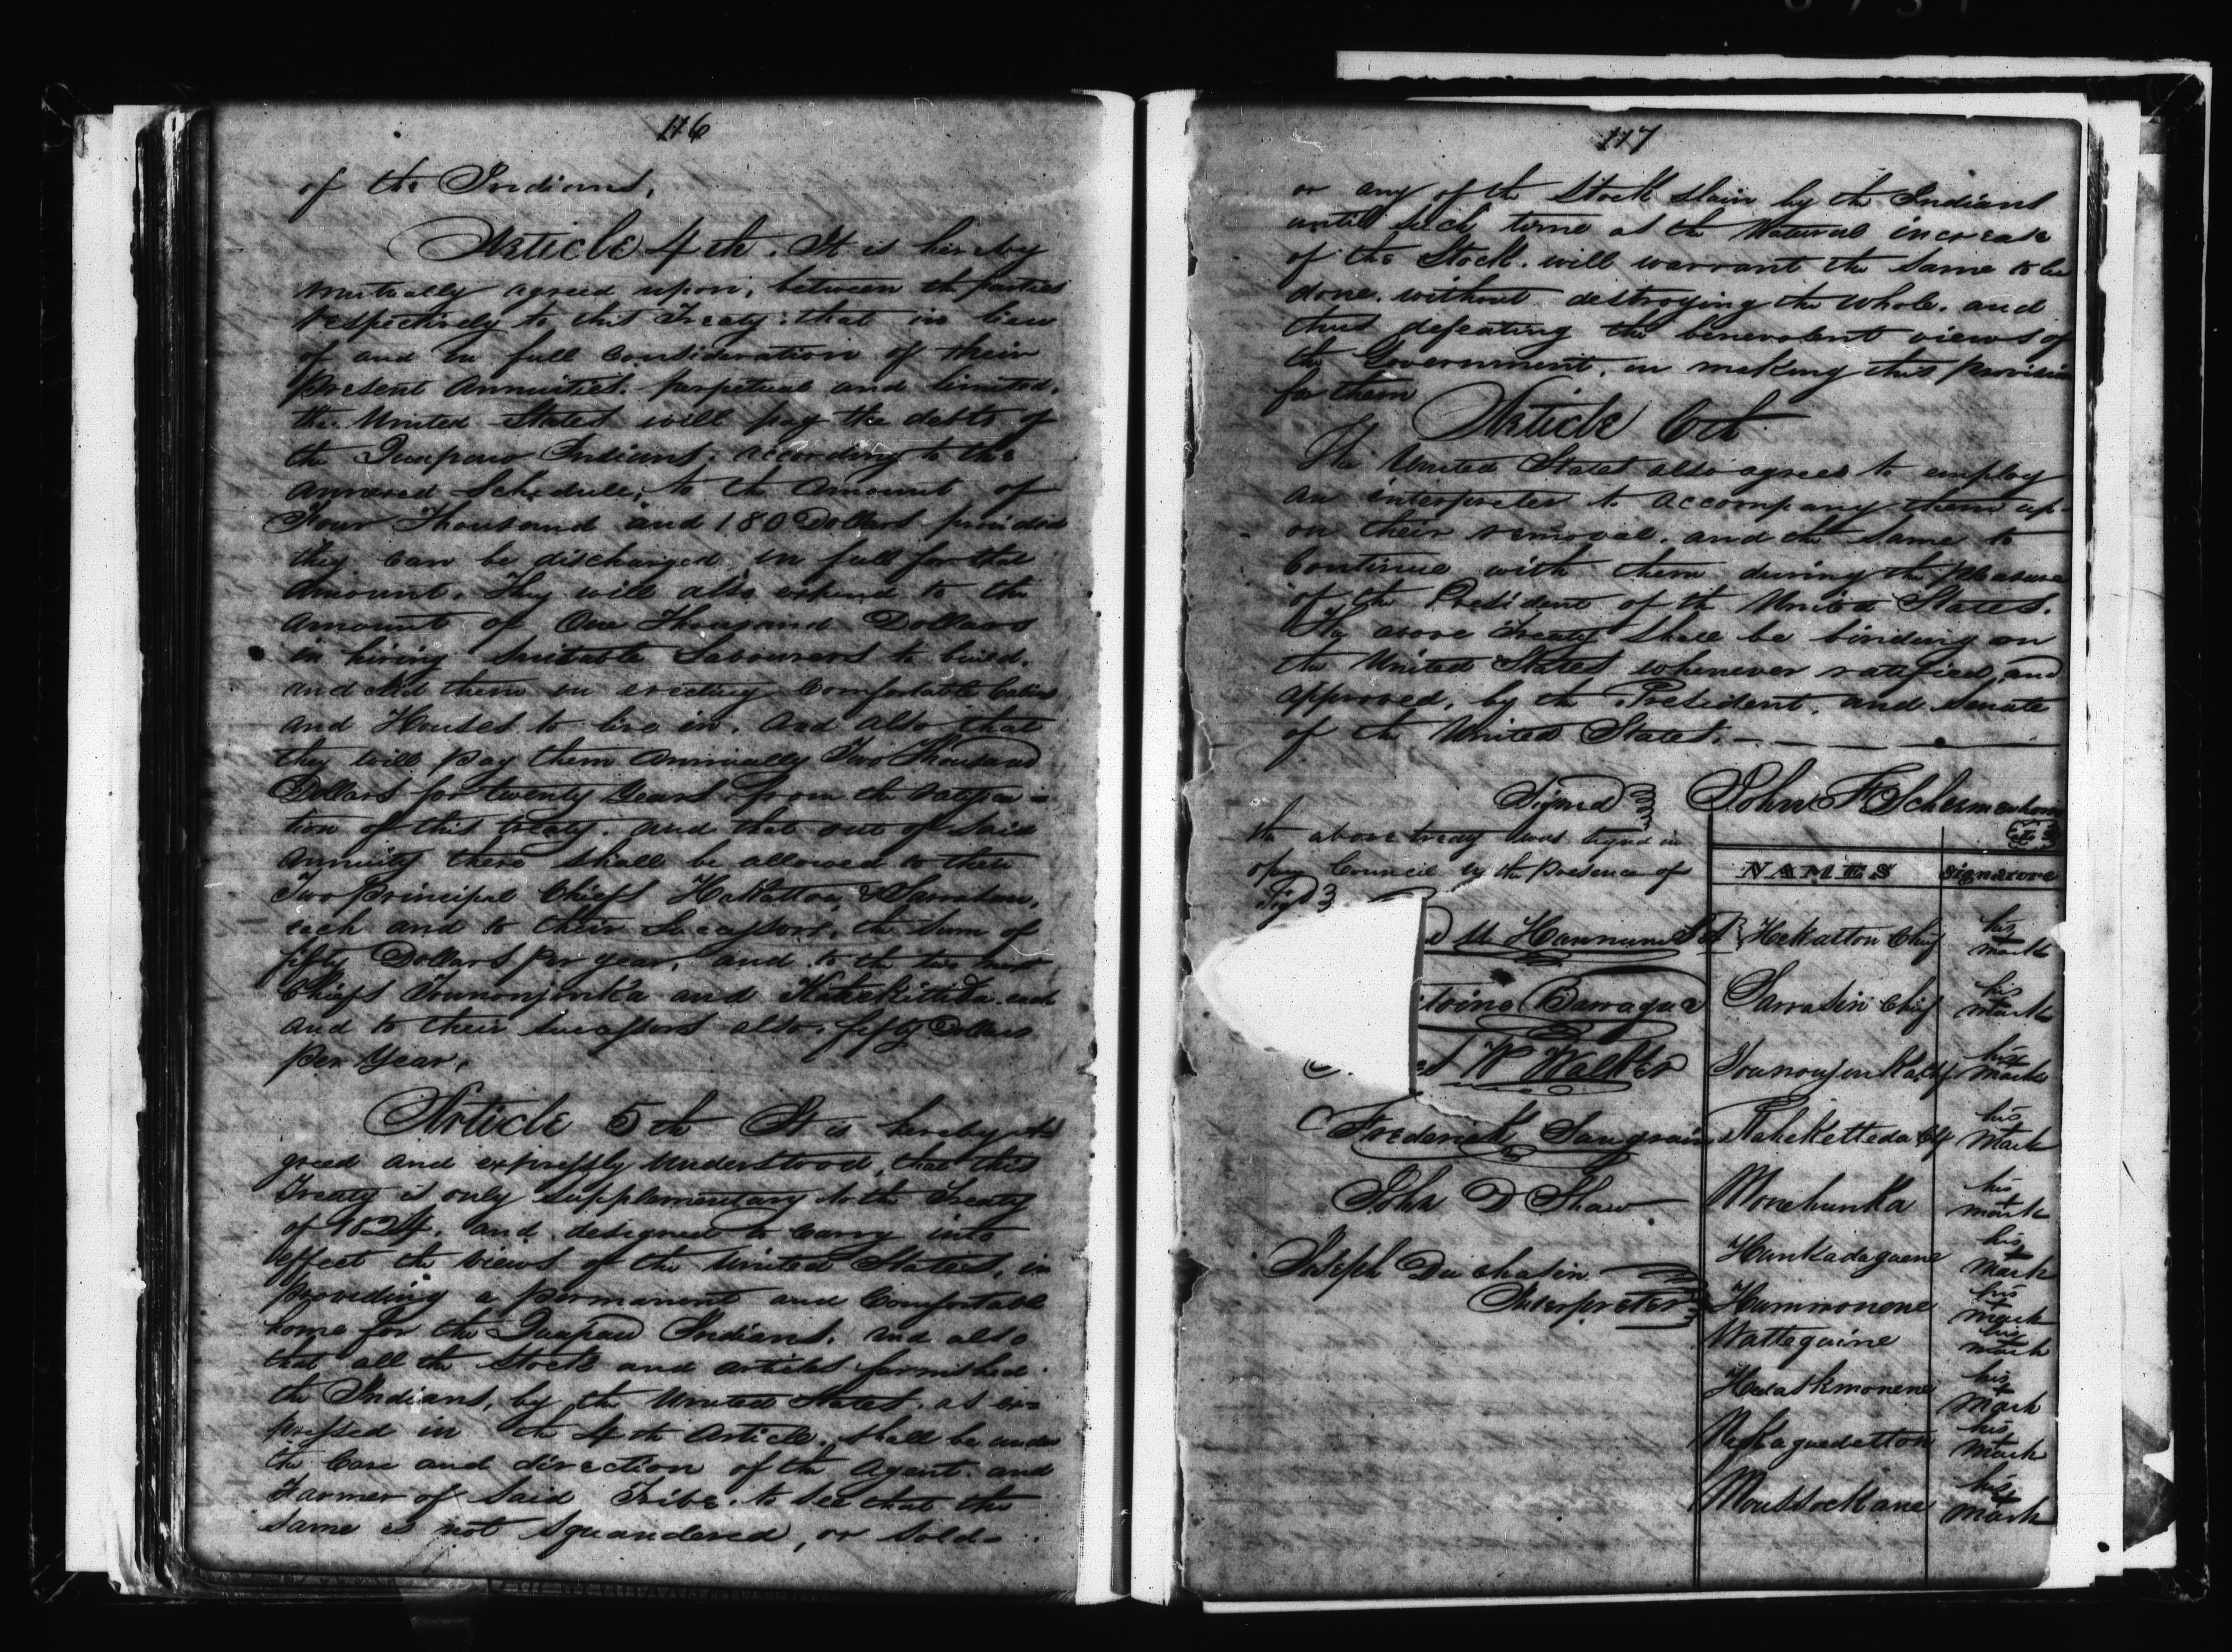 116
of the Indians.
Article 4th. It is hereby
mutually agreed upon, between the parties
respectively to this Treaty; that in lieu
of and in full Consideration of their
present Annuities. perpetual and limited.
the United States will pay the debts of
the Quapaw Indians. according to the
annexed Schedule; to the amount of
Four Thousand and 180 Dollars provided
they can be discharged in full for that
amount. They will also expend to the
amount of One Thousand Dollars
in hiring suitable Labourers to build.
and Aid them in erecting Comfortable Cabins
and Houses to live in. And also that
they will pay them annually Two Thousand
Dollars for twenty years from the ratifica-
tion of this treaty. and that out of said
annuity there shall be allowed to their
Two principal Chiefs Hekatton & Sarrasin,
each and to their Successors, the sum of
fifty Dollars per year, and to the two
Chiefs Tounonjinka and Kahekitteda each
and to their successors also. fifty Dollars
per Year.
Article 5th It is hereby A-
greed and expressly understood, that this
Treaty is only supplementary to the Treaty
of 1824. and designed to Carry into
effect the views of the United States, in
providing a permanent and Comfortable
home for the Quapaw Indians. and also
that all the Stock and articles furnished
the Indians, by the United States. as ex-
pressed in the 4th Article. shall be under
the Care and direction of the Agent. and
Farmer of said Tribe. to see that the
same is not squandered, or sold-
117
or any of the Stock slain by the Indians
until such time as the Natural increase
of the Stock. will warrant the same to be
done. without destroying the whole. and
thus defeating the benevolent views of
the Government. in making this provision
for them
Article 6th
The United States also agrees to employ
an interpreter to accompany them up-
on their removal. and the same to
Continue with them during the pleasure
of the President of the United States.
The above treaty shall be binding on
the United States whenever ratified, and
approved, by the President. and Senate
of the United States.
Signed John F Schermerhorn
the above treaty was signed in
open Council in the presence of
Sigd
NAMES Signature
M Hannum Hekatton Chief his mark
toine Barraque Sarrasin Chief his mark
W Walker Tounonjinka Chf his mark
Frederick Saugrain Kaheketteda Chf his mark
John D Shaw Monehunka his mark
Joseph Duchasin Hunkadagaene his mark
Interpreter Hummonene his mark
Watteguine his mark
Hadaskmonene his mark
Nekaguedetton his mark
Moussockane his mark